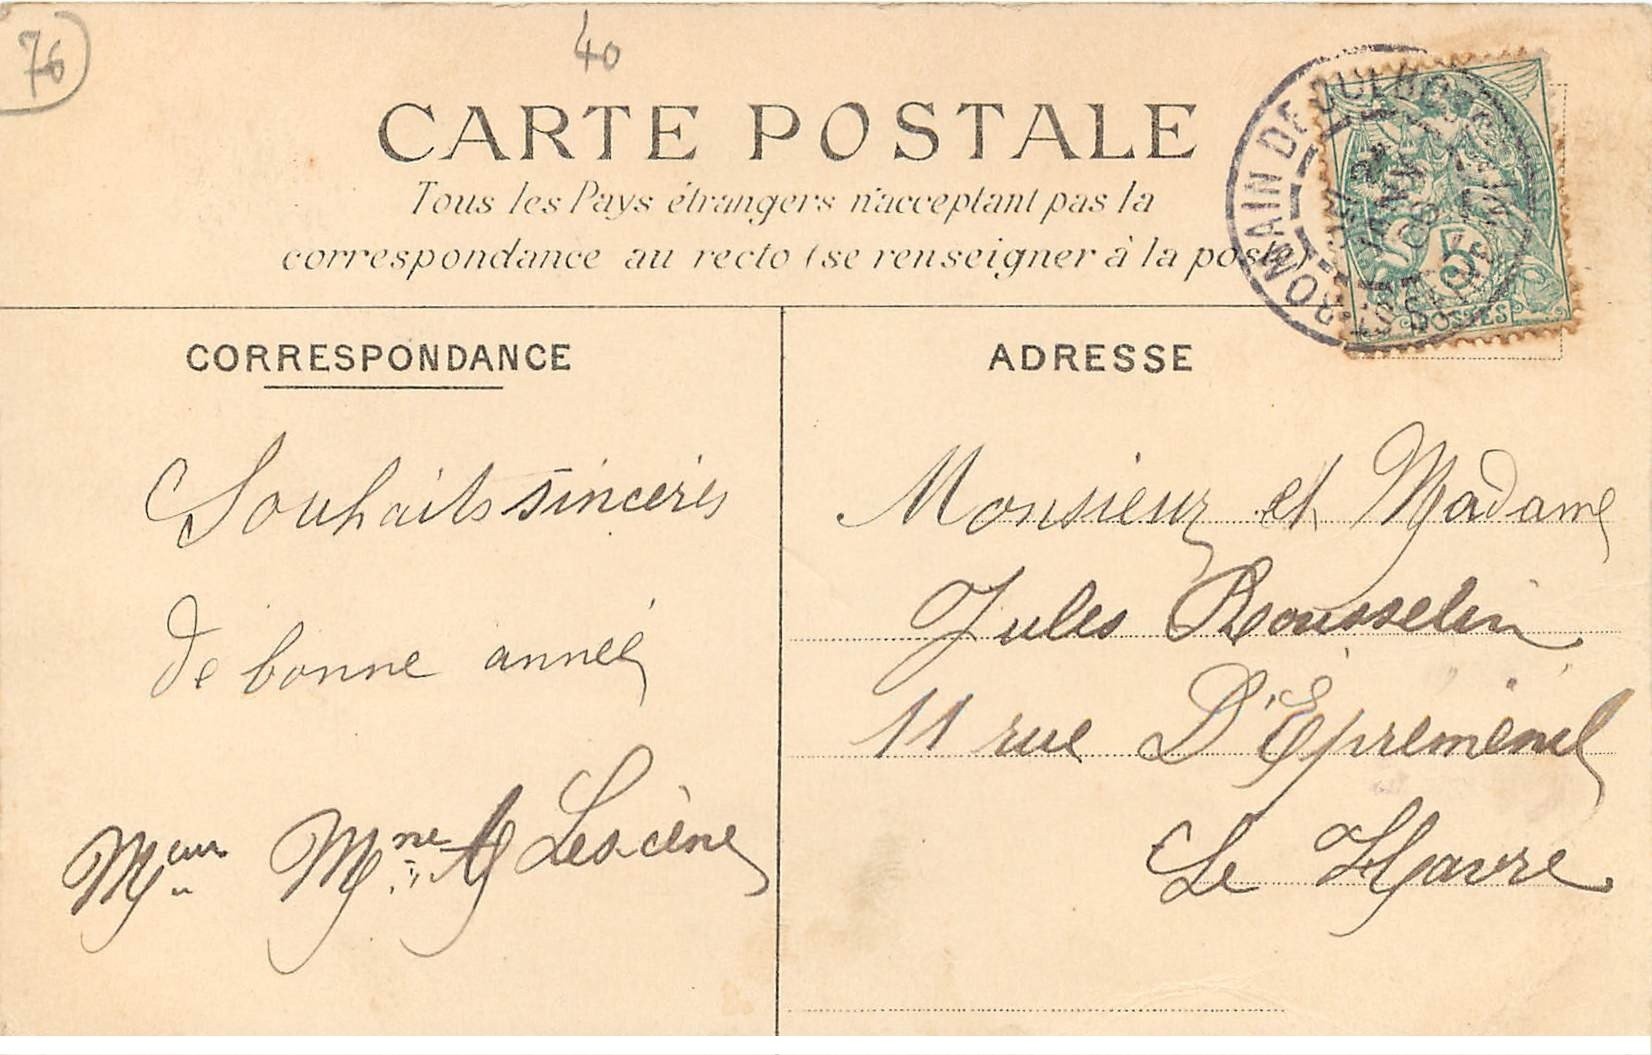 76
40
CARTE POSTALE
Tous les Pays étrangers n'acceptant pas la
correspondance au recto (se renseigner à la poste)
ROMAIN DE COLBOSC
5
POSTES
CORRESPONDANCE
Souhaits sincères
de bonne année
Mr Mme A Lescène
ADRESSE
Monsieur et Madame
Jules Rousselin
11 rue D'Épréménil
Le Havre